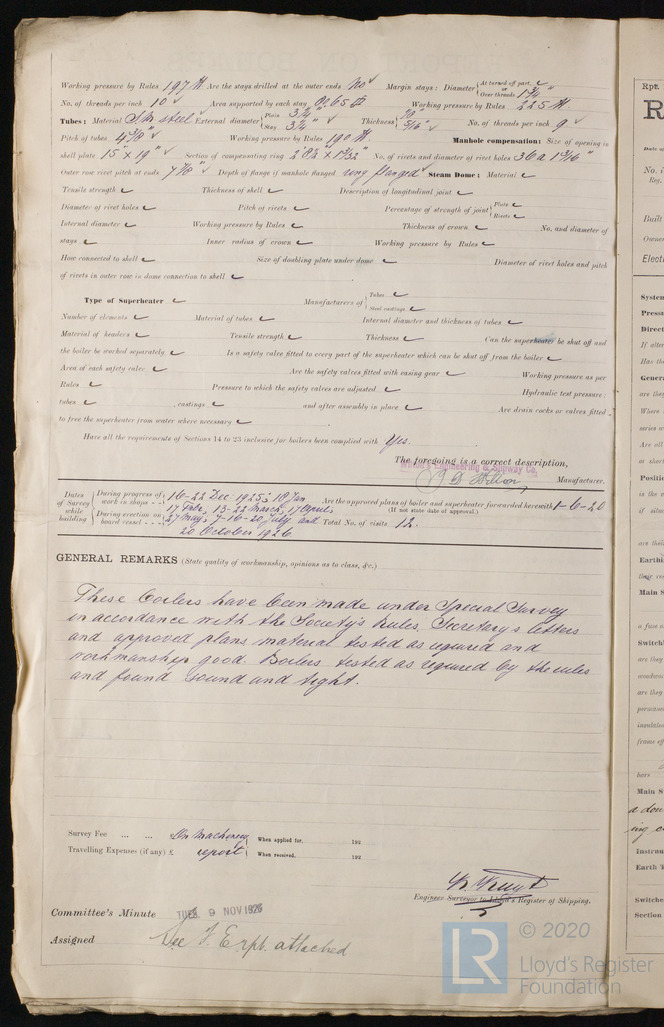 Working pressure by Rules 197 lb. Are the stays drilled at the outer ends No Margin stays: Diameter { At turned off part, Over threads 1 3/4"
No. of threads per inch 10 Area supported by each stay Working pressure by Rules 225 lb.
Tubes: Material S.M. steel External diameter { Plain 3 1/4" Stay 3 1/4" Thickness { 5/16" No. of threads per inch 9
Pitch of tubes 4 3/8" Working pressure by Rules 190 lb Manhole compensation: Size of opening in
shell plate 15" x 19" Section of compensating ring No. of rivets and diameter of rivet holes 36 a 1 3/16"
Outer row rivet pitch at ends 7 7/8" Depth of flange if manhole flanged ring flanged Steam Dome: Material
Tensile strength Thickness of shell Description of longitudinal joint
Diameter of rivet holes Pitch of rivets Percentage of strength of joint { Plate Rivets
Internal diameter Working pressure by Rules Thickness of crown No. and diameter of
stays Inner radius of crown Working pressure by Rules
How connected to shell Size of doubling plate under dome Diameter of rivet holes and pitch
of rivets in outer row in dome connection to shell
Type of Superheater Manufacturers of { Tubes Steel castings
Number of elements Material of tubes Internal diameter and thickness of tubes
Material of headers Tensile strength Thickness Can the superheater be shut off and
the boiler be worked separately Is a safety valve fitted to every part of the superheater which can be shut off from the boiler
Area of each safety valve Are the safety valves fitted with easing gear Working pressure as per
Rules Pressure to which the safety valves are adjusted Hydraulic test pressure:
tubes , castings and after assembly in place Are drain cocks or valves fitted
to free the superheater from water where necessary
Have all the requirements of Sections 14 to 23 inclusive for boilers been complied with Yes.
The foregoing is a correct description,
Wilton's Engineering & Slipway Co.
J. G. Wilton, Manufacturer.
Dates of Survey while building { During progress of work in shops - - 16-22 Dec. 1925; 18 Jan
17 Febr, 13-22 March, 17 April, Are the approved plans of boiler and superheater forwarded herewith 1-6-20
(If not state date of approval.)
During erection on board vessel - - - 27 May, 7-16-20 July and Total No. of visits 12.
20 October 1926
GENERAL REMARKS (State quality of workmanship, opinions as to class, &c.)
These boilers have been made under Special Survey
in accordance with the Society's Rules, Secretary's letters
and approved plans, material tested as required and
workmanship good. Boilers tested as required by the rules
and found sound and tight.
Survey Fee ... ... On Machinery When applied for, 192
Travelling Expenses (if any) £ report When received, 192
Engineer Surveyor to Lloyd's Register of Shipping.
Committee's Minute TUES. 9 NOV 1926
Assigned See F.E. rpt. attached
Rpt.
R
Date of
No. i
Reg.
Built
Owne
Electr
System
Pressu
Direct
If alter
Has th
Genera
are they
Where
series w
Are all
or short
Positio
is the s
if situa
are thei
Earthi
their co
Main S
a fuse o
Switch
are they
woodwo
are they
perman
insulatio
frame ef
bars
Main S
a dou
ing c
Instrum
Earth
Switche
Section
LR © 2020
Lloyd's Register
Foundation